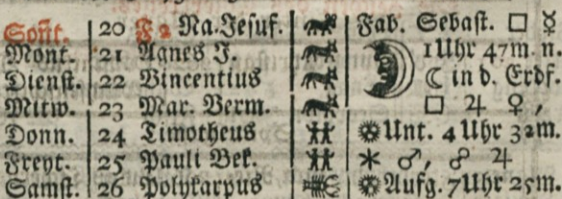 Soñt. 20 F 2 Na. Jesuf. Fab. Sebast. □ ☿
Mont. 21 Agnes J. 1 Uhr 47 m. n.
Dienst. 22 Vincentius ☾ in d. Erdf.
Mitw. 23 Mar. Verm. □ ♃ ♀,
Donn. 24 Timotheus Unt. 4 Uhr 32 m.
Freyt. 25 Pauli Bek. ⚹ ♂, ☍ ♃
Samst. 26 Polykarpus Aufg. 7 Uhr 25 m.